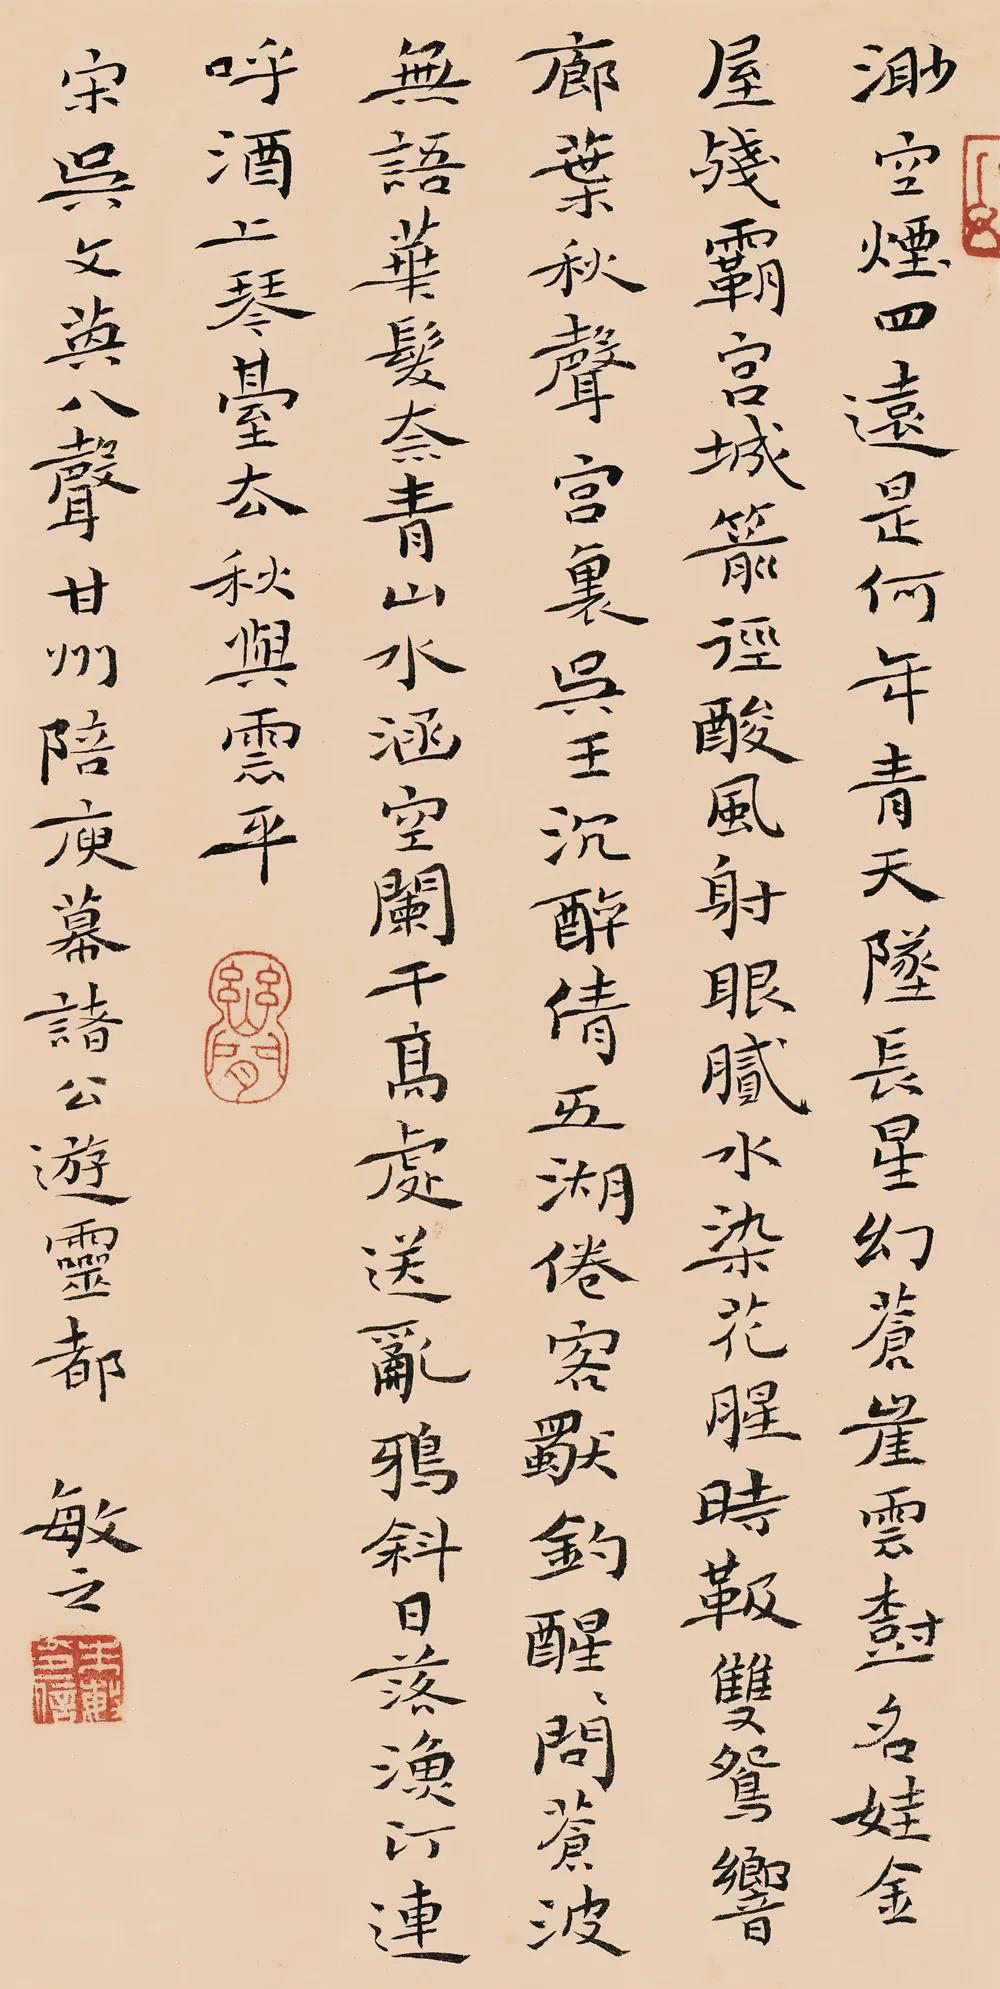 渺空煙四遠是何年青天墜長星幻蒼崖雲樹名娃金
屋殘霸宮城箭徑酸風射眼膩水染花腥時靸雙鴛響
廊葉秋聲宮裏吳王沉醉倩五湖倦客獨釣醒〻問蒼波
無語華髮奈青山水涵空闌干高處送亂鴉斜日落漁汀連
呼酒上琴臺去秋與雲平
宋吳文英八聲甘州陪庾幕諸公遊靈都 敏之